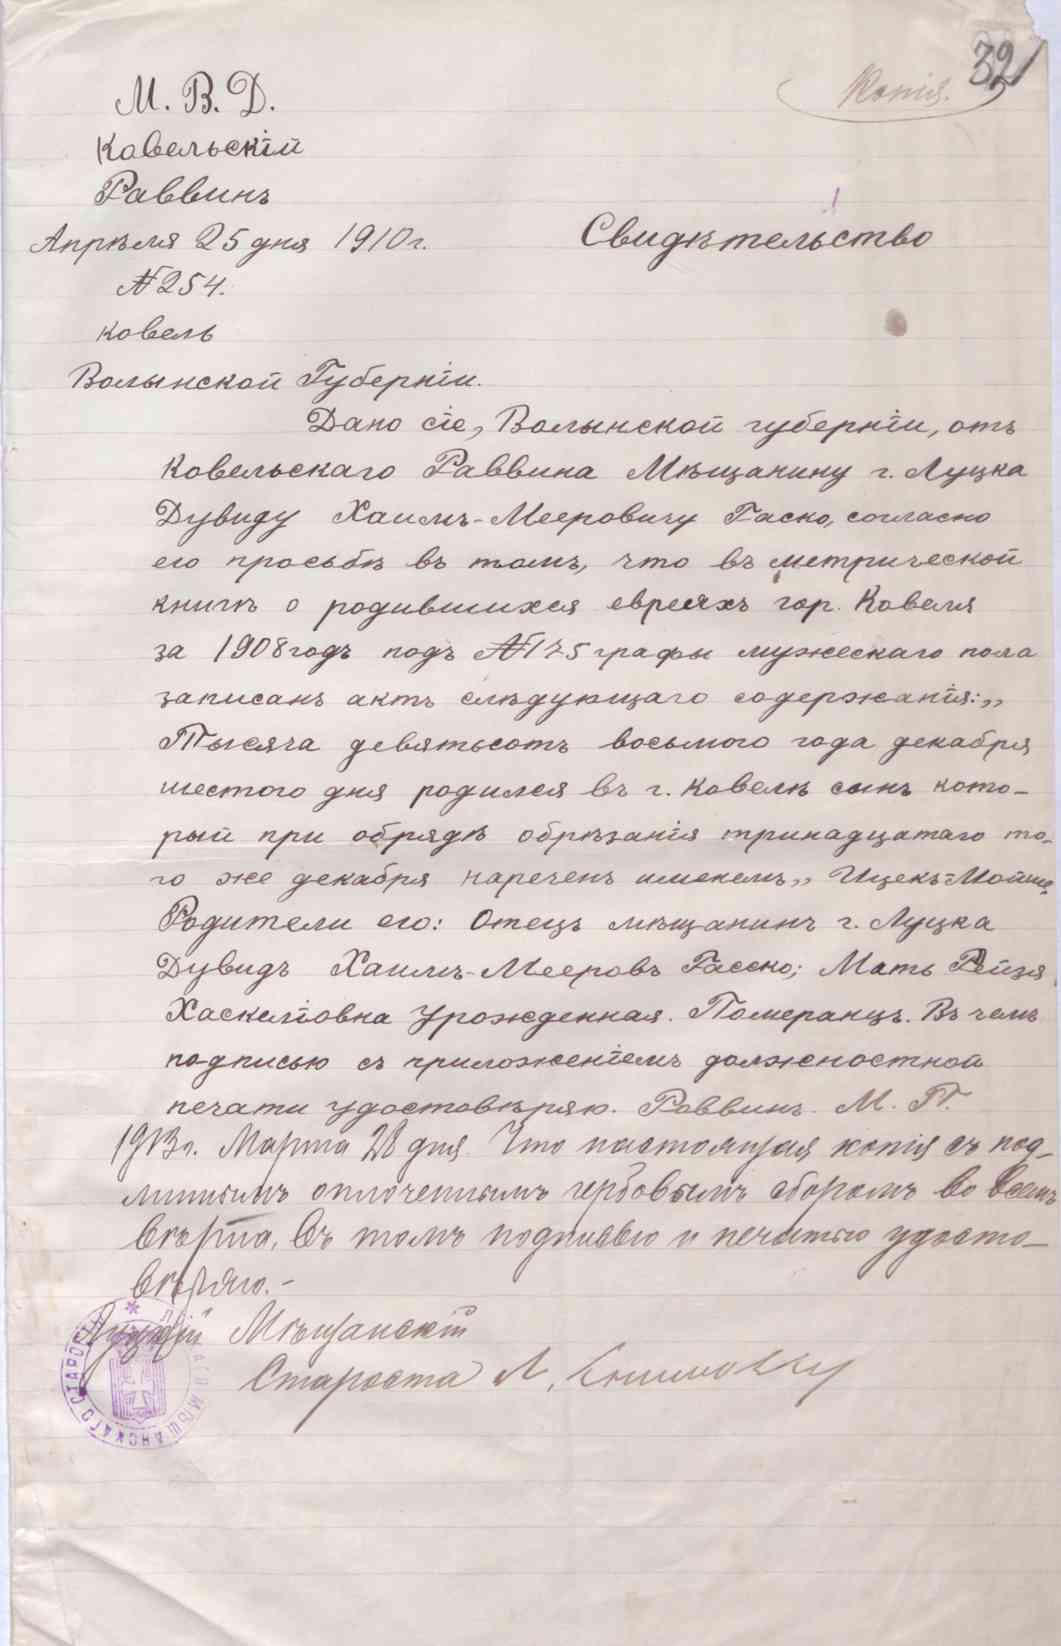 32
Копія.
М. В. Д.
Ковельскій
Раввинъ
Апрѣля 25 дня 1910 г.
Свидѣтельство
№ 254.
Ковель
Волынской Губерніи.
Дано сіе, Волынской губерніи, отъ
Ковельскаго Раввина Мѣщанину г. Луцка
Дувиду Хаимъ-Мееровичу Гаско, согласно
его просьбѣ въ томъ, что въ метрической
книгѣ о родившихся евреяхъ гор. Ковеля
за 1908 годъ подъ № 125 графы мужескаго пола
записанъ актъ слѣдующаго содержанія: „
Тысяча девятьсотъ восьмого года декабря
шестого дня родился въ г. Ковелѣ сынъ кото-
рый при обрядѣ обрѣзанія тринадцатаго то-
го же декабря нареченъ именемъ „ Ицекъ-Мойше
Родители его: Отецъ мѣщанинъ г. Луцка
Дувидъ Хаимъ-Мееровъ Гасско; Мать Рейзя
Хаскелiовна Урожденная. Померанцъ. Въ чемъ
подписью съ приложеніемъ должностной
печати удостовѣряю. Раввинъ. М. П.
1913 г. Марта 28 дня. Что настоящая копія съ под-
линнымъ оплоченнымъ гербовымъ сборомъ во всемъ
вѣрна, въ томъ подписью и печатью удосто-
вѣряю.-
Луцкій Мѣщанскій
Староста Л.
МѢЩАНСКАГО СТАРОСТЫ